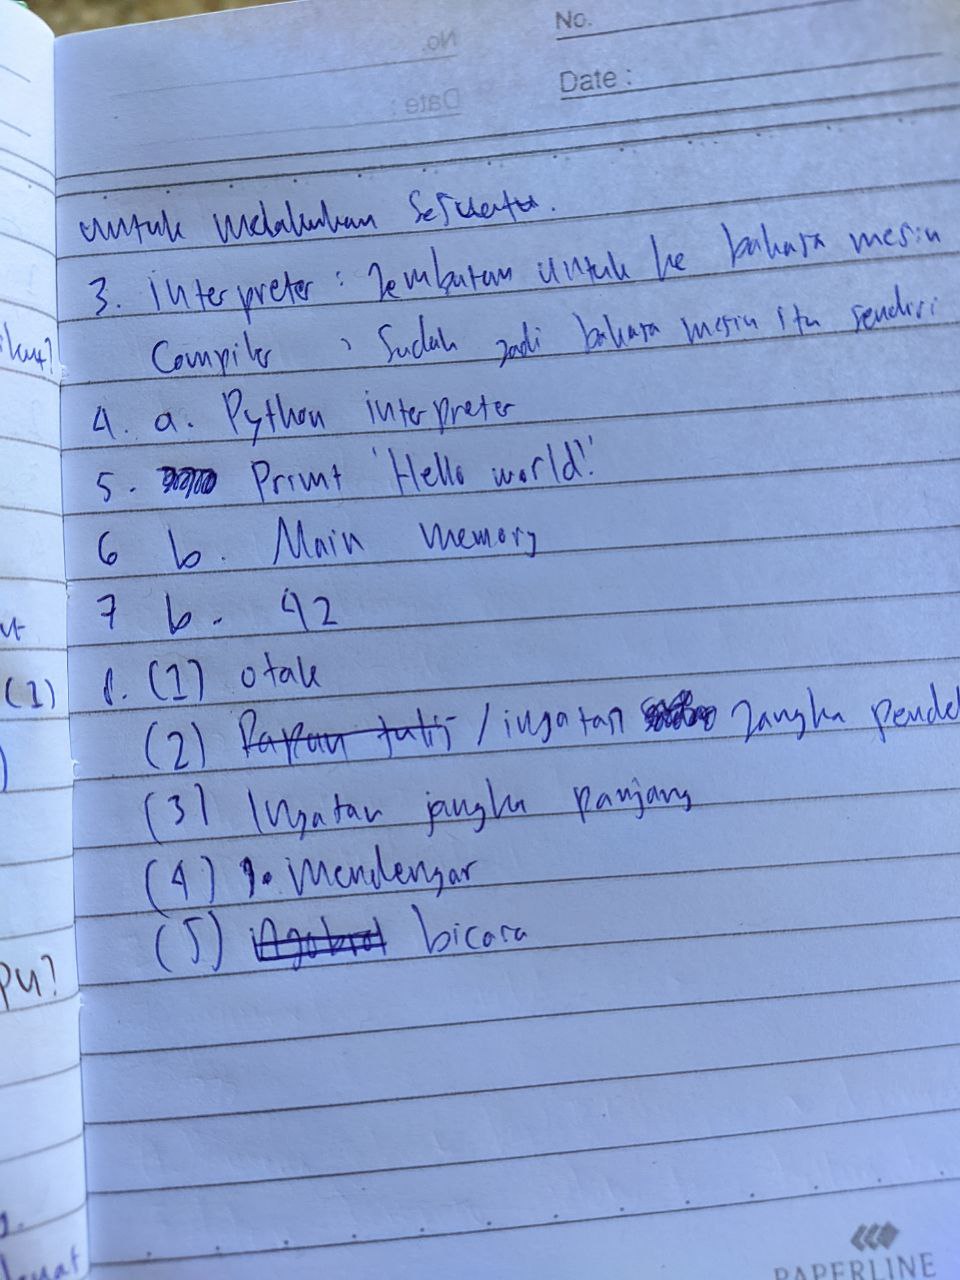 No.
Date :
untuk melakukan sesuatu.
3. interpreter : Jembatan untuk ke bahasa mesin
Compiler : Sudah jadi bahasa mesin itu sendiri
4. a. Python interpreter
5. Print 'Hello world!'
6 b. Main memory
7 b. 42
8. (1) otak
(2) Papan tulis / ingatan jangka pendek
(3) Ingatan jangka panjang
(4) Mendengar
(5) Ngobrol bicara
(1)
PU?
PAPERLINE